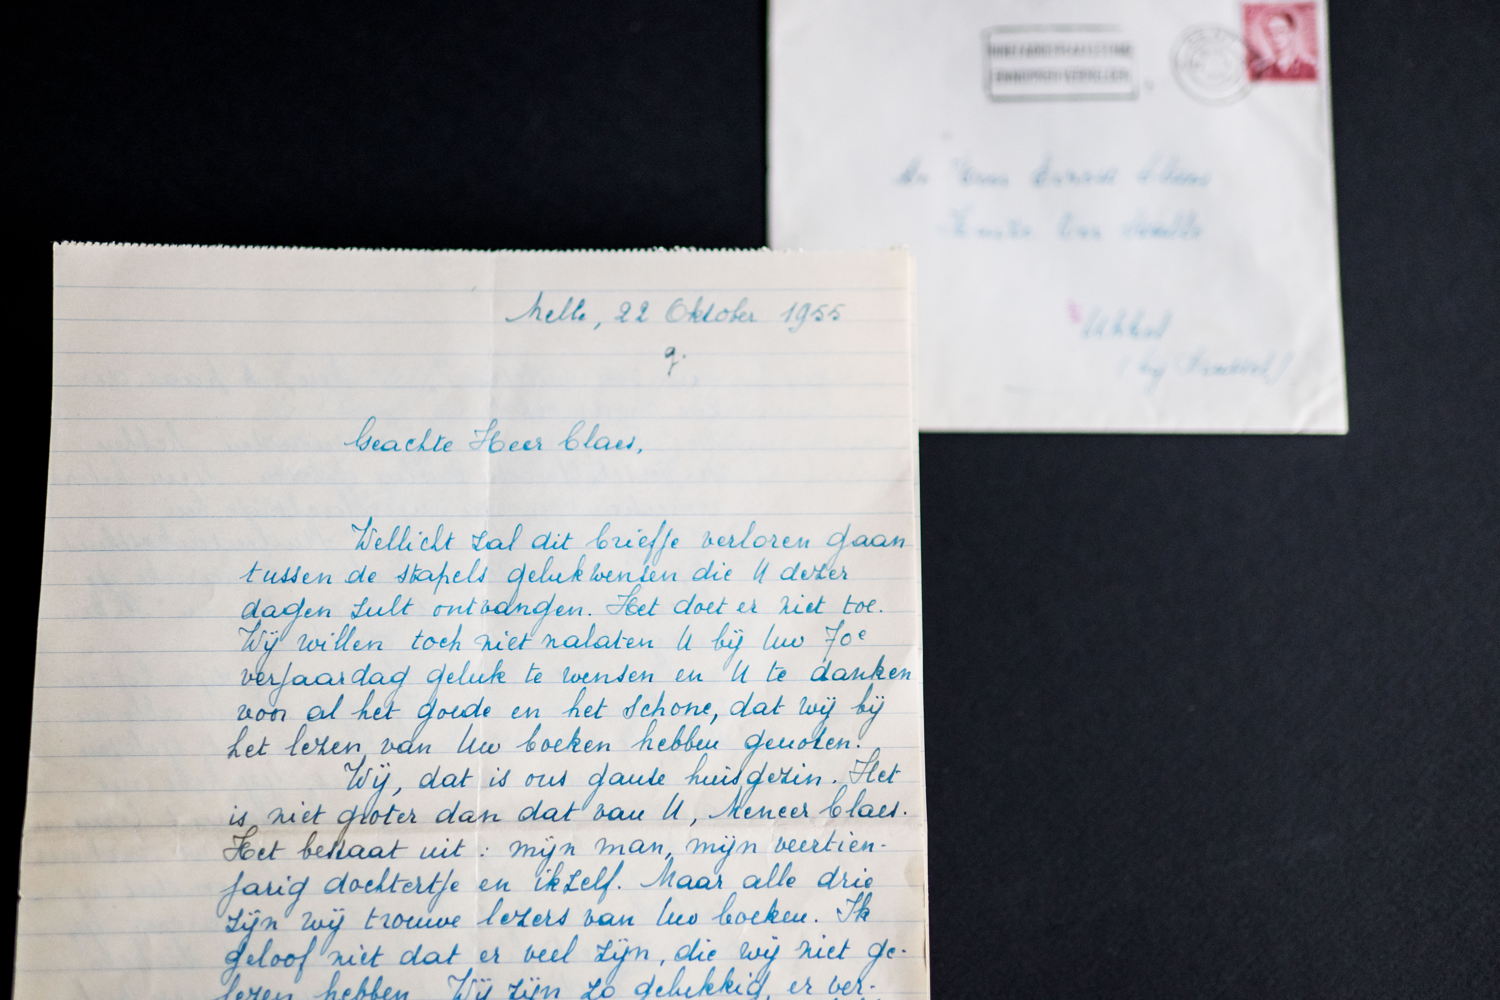 Melle, 22 Oktober 1955
Geachte Heer Claes,
Wellicht zal dit briefje verloren gaan
tussen de stapels gelukwensen die U dezer
dagen zult ontvangen. Het doet er niet toe.
Wij willen toch niet nalaten U bij Uw 70e
verjaardag geluk te wensen en U te danken
voor al het goede en het schone, dat wij bij
het lezen van Uw boeken hebben genoten.
Wij, dat is ons ganse huisgezin. Het
is niet groter dan dat van U, Meneer Claes.
Het bestaat uit : mijn man, mijn veertien-
jarig dochtertje en ikzelf. Maar alle drie
zijn wij trouwe lezers van Uw boeken. Ik
geloof niet dat er veel zijn, die wij niet ge-
lezen hebben. Wij zijn zo gelukkig, er ver-
Claes
Ukkel
(bij Brussel)